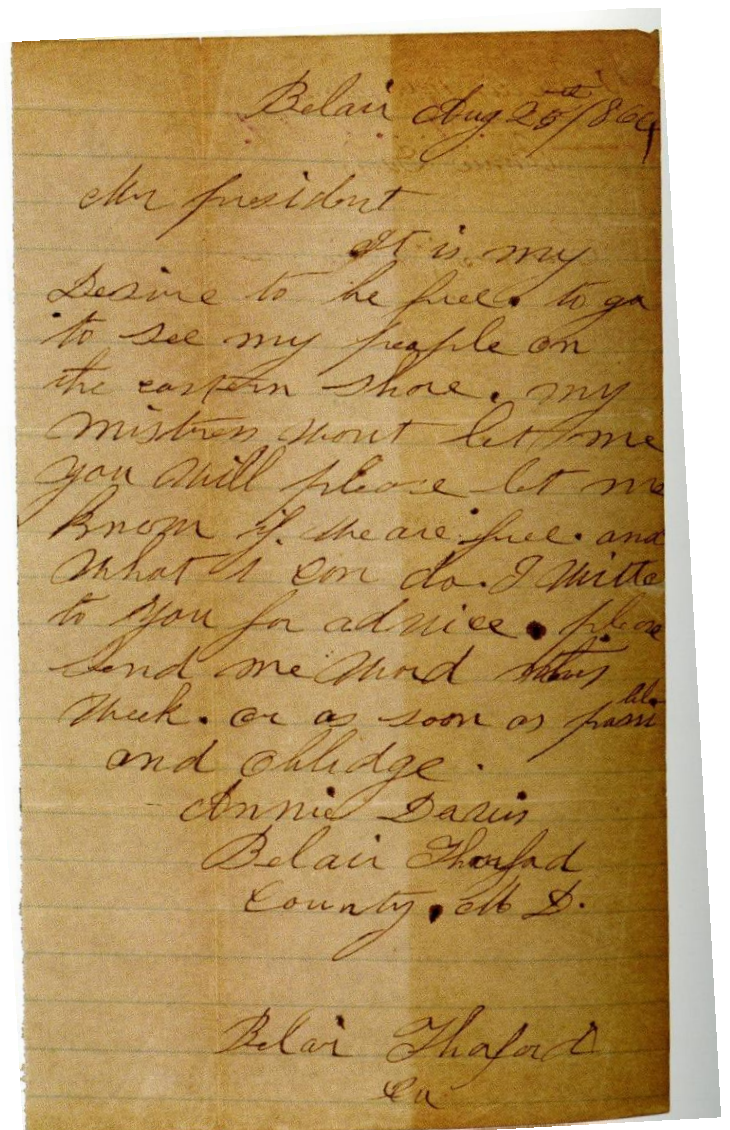 Belair Aug 25th 1864
Mr president
It is my
Desire to be free. to go
to see my people on
the eastern shore. my
mistress wont let me
you will please let me
know if we are free. and
what i can do. I write
to you for advice. please
send me word this
week. or as soon as possible
and oblidge.
Annie Davis
Belair Thorford
County. M D.
Belair Thoford
Co